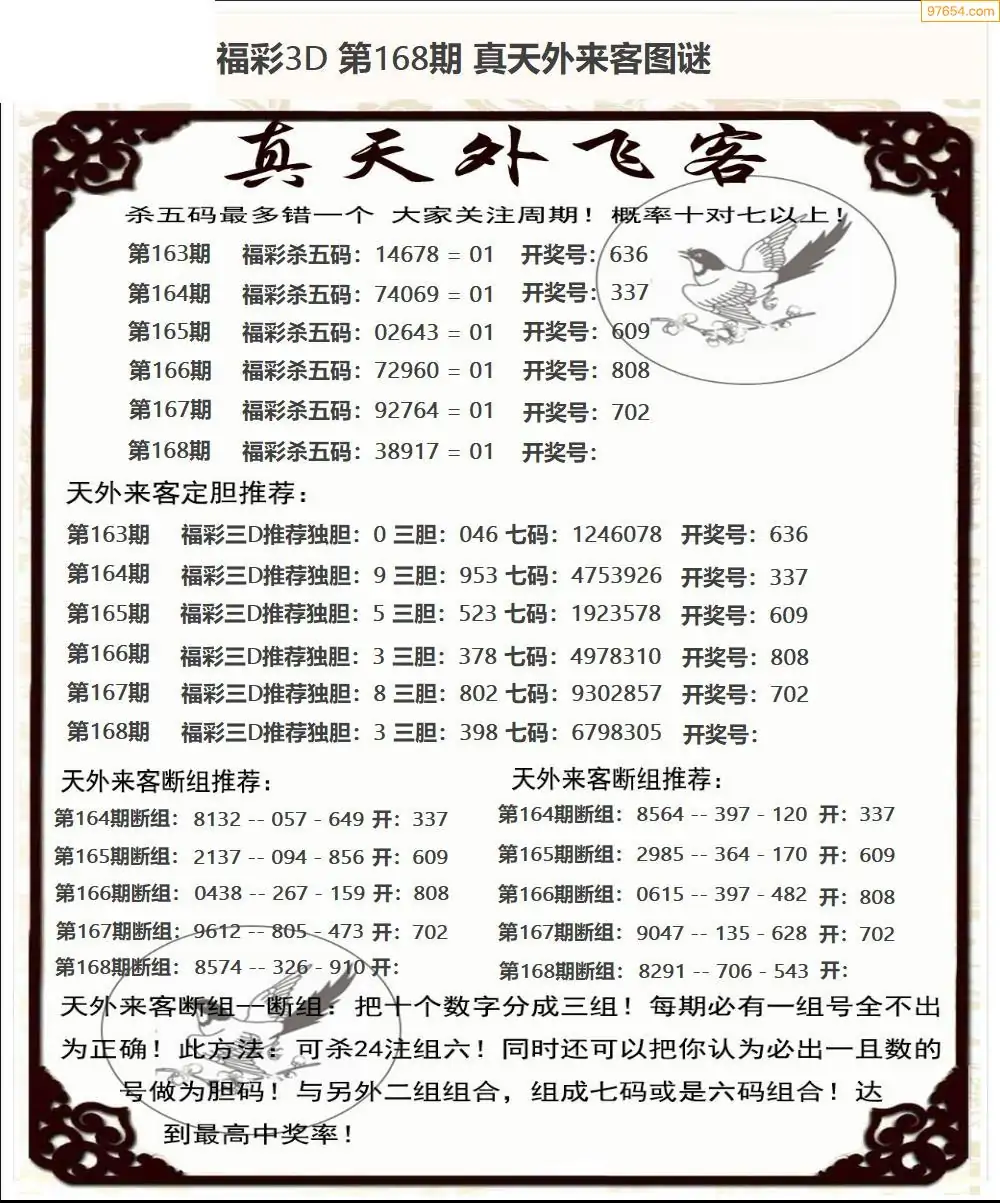 97654.com
福彩3D 第168期 真天外来客图谜
真天外飞客
杀五码最多错一个 大家关注周期！概率十对七以上！
第163期 福彩杀五码：14678 = 01 开奖号：636
第164期 福彩杀五码：74069 = 01 开奖号：337
第165期 福彩杀五码：02643 = 01 开奖号：609
第166期 福彩杀五码：72960 = 01 开奖号：808
第167期 福彩杀五码：92764 = 01 开奖号：702
第168期 福彩杀五码：38917 = 01 开奖号：
天外来客定胆推荐：
第163期 福彩三D推荐独胆：0 三胆：046 七码：1246078 开奖号：636
第164期 福彩三D推荐独胆：9 三胆：953 七码：4753926 开奖号：337
第165期 福彩三D推荐独胆：5 三胆：523 七码：1923578 开奖号：609
第166期 福彩三D推荐独胆：3 三胆：378 七码：4978310 开奖号：808
第167期 福彩三D推荐独胆：8 三胆：802 七码：9302857 开奖号：702
第168期 福彩三D推荐独胆：3 三胆：398 七码：6798305 开奖号：
天外来客断组推荐：
第164期断组：8132 -- 057 - 649 开：337
第165期断组：2137 -- 094 - 856 开：609
第166期断组：0438 -- 267 - 159 开：808
第167期断组：9612 -- 805 - 473 开：702
第168期断组：8574 -- 326 - 910 开：
天外来客断组推荐：
第164期断组：8564 -- 397 - 120 开：337
第165期断组：2985 -- 364 - 170 开：609
第166期断组：0615 -- 397 - 482 开：808
第167期断组：9047 -- 135 - 628 开：702
第168期断组：8291 -- 706 - 543 开：
天外来客断组一断组：把十个数字分成三组！每期必有一组号全不出
为正确！此方法：可杀24注组六！同时还可以把你认为必出一且数的
号做为胆码！与另外二组组合，组成七码或是六码组合！达
到最高中奖率！